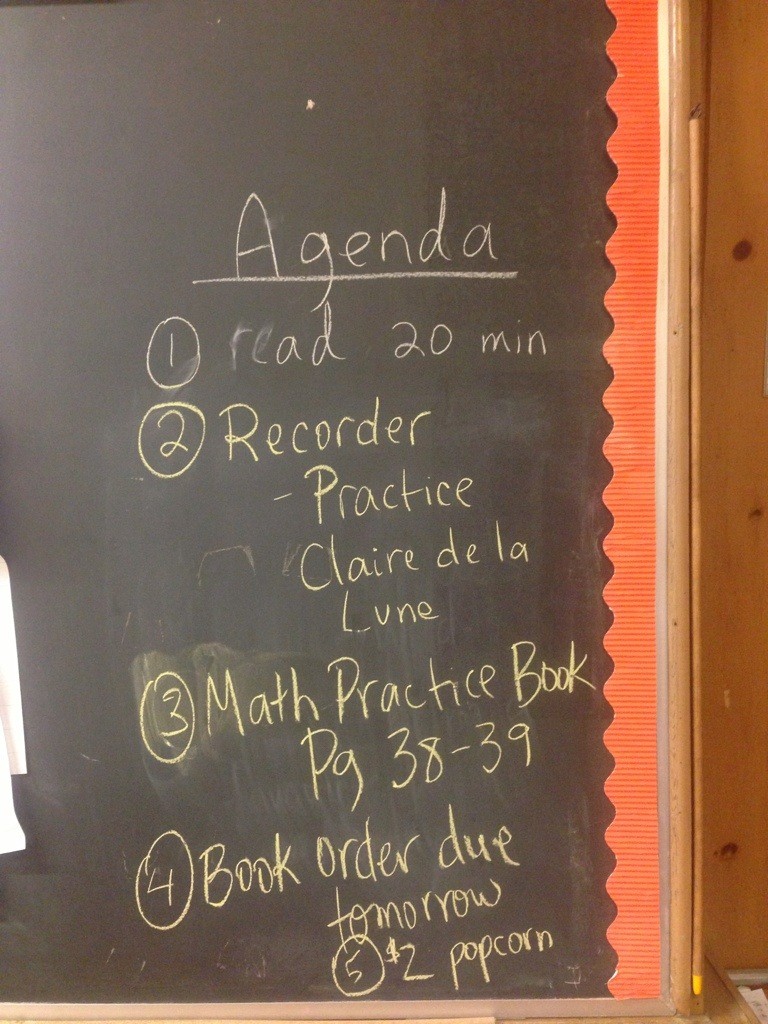 Agenda
1 read 20 min
2 Recorder
- Practice
Claire de la
Lune
3 Math Practice Book
Pg 38-39
4 Book order due
tomorrow
5 $2 popcorn